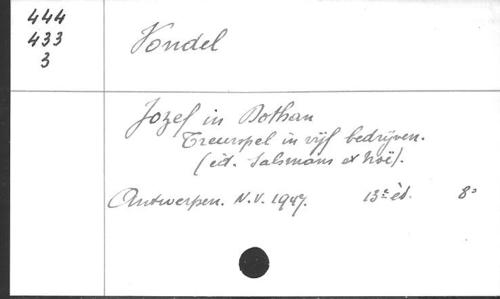 444
433
3
Vondel
Jozef in Dothan
Treurspel in vijf bedrijven.
(éd. Salsmans et Noë).
Antwerpen. N.V. 1947. 13e éd. 8o